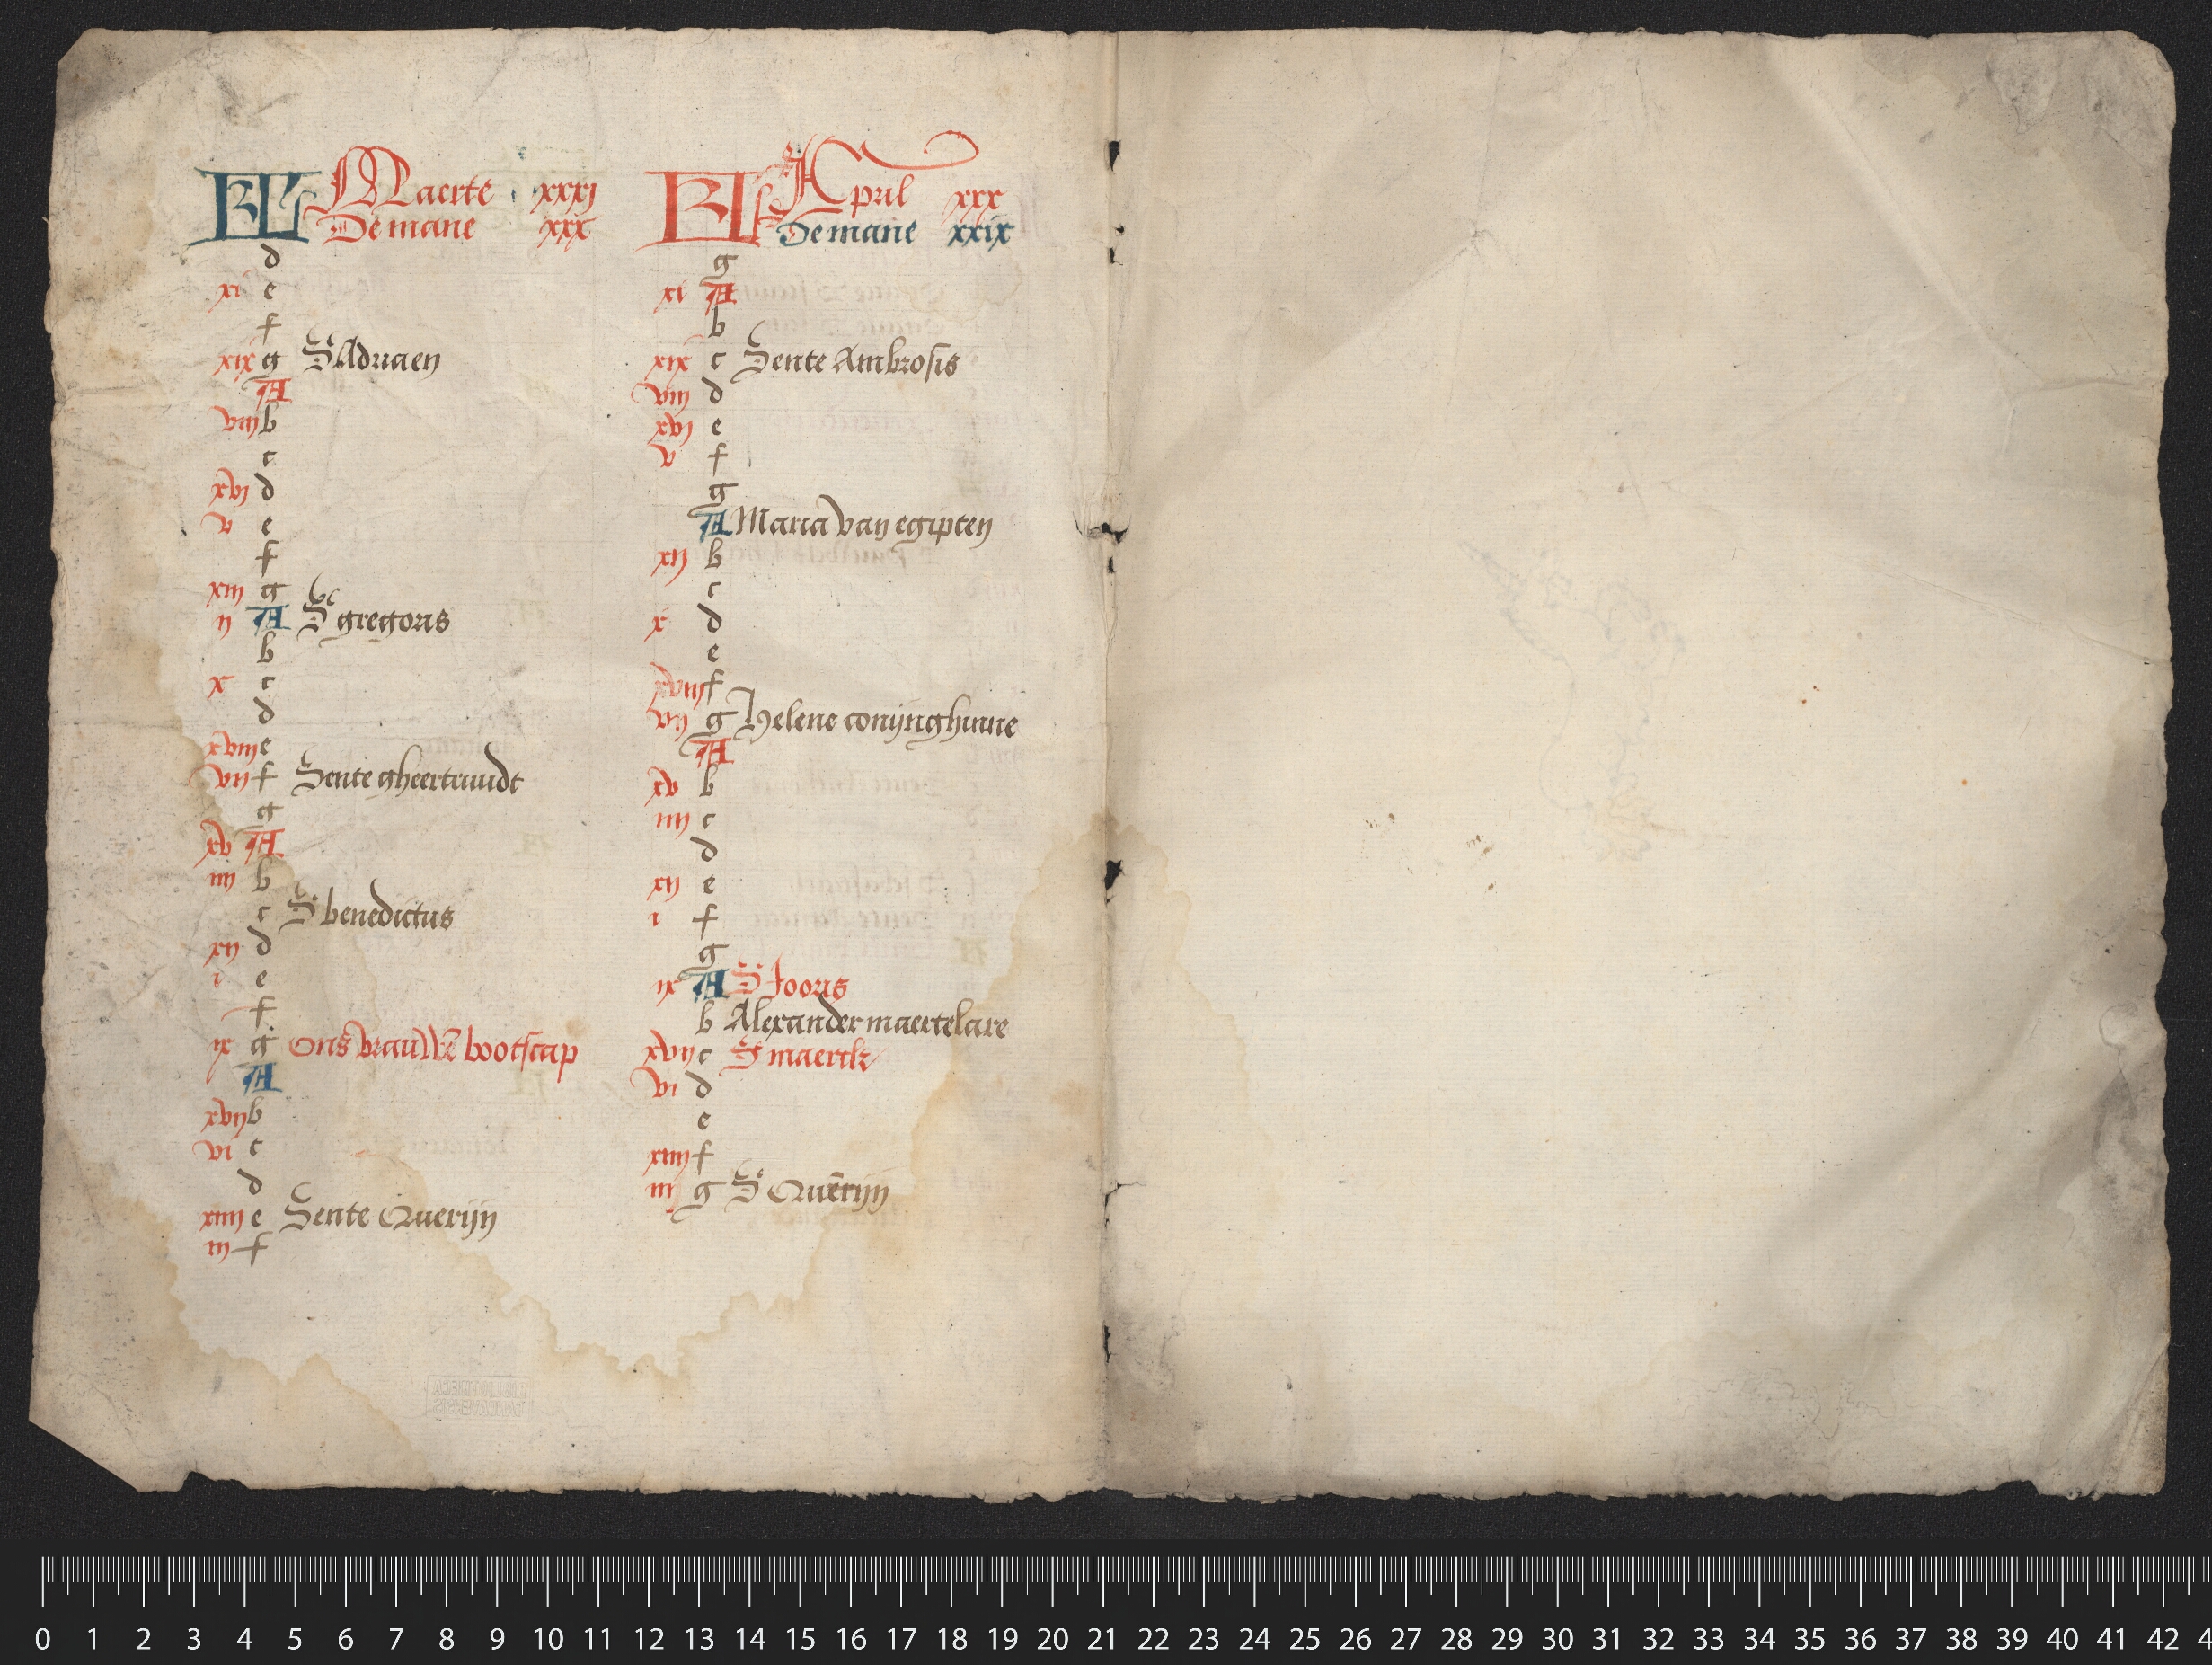 KL Maerte xxxj
De mane xxx
d
xi e
f
xix g S Adriaen
A
viij b
c
xvj d
v e
f
xiij g
ij A Sc gregoris
b
x c
d
xviij e
vij f Sente gheertruudt
g
xv A
iiij b
c S benedictus
xij d
i e
f
ix g Ons vrauwe bootscap
A
xvij b
vi c
d
xiiij e Sente Querijn
iij f
KL April xxx
De mane xxix
g
xi A
b
xix c Sente Ambrosis
viij d
xvj e
v f
g
A Maria van egipten
xij b
c
x d
e
xviij f
vij g Helene conijnghinne
A
xv b
iiij c
d
xij e
i f
g
ix A S Jooris
b Alexander maertelare
xvij c S maerck
vi d
e
xiiij f
iij g S Querijn
0 1 2 3 4 5 6 7 8 9 10 11 12 13 14 15 16 17 18 19 20 21 22 23 24 25 26 27 28 29 30 31 32 33 34 35 36 37 38 39 40 41 42